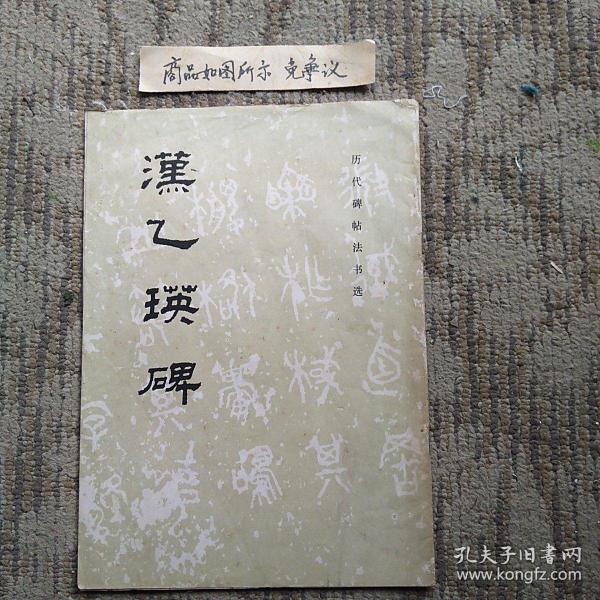 商品如图所示 免争议
历代碑帖法书选
漢乙瑛碑
孔夫子旧书网
www.kongfz.com